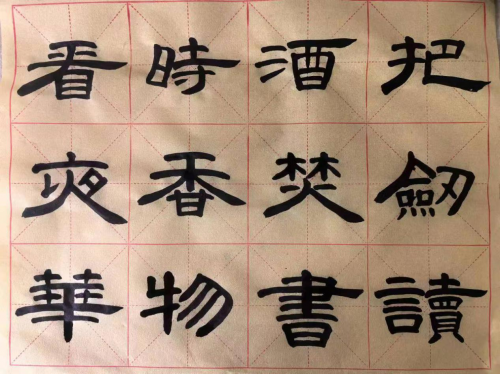 把酒時看
劒焚香夜
讀書物華